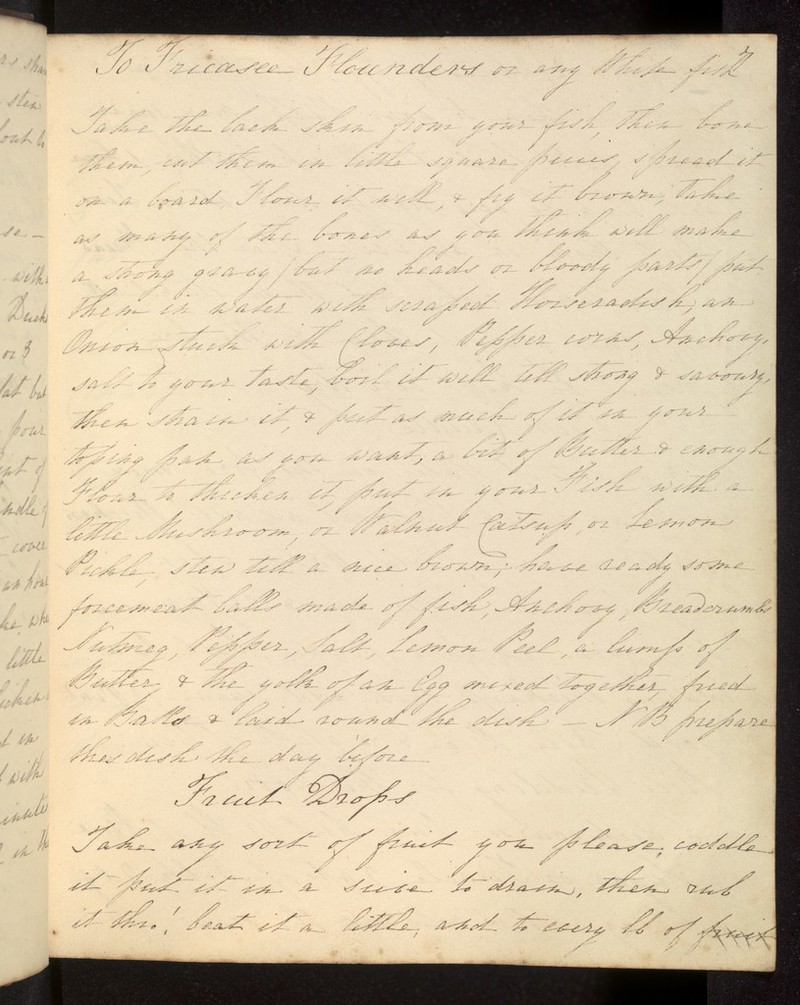 To Fricasee Flounders or any White fish
Take the back skin from your fish, then bone
them, cut them in little square pieces, spread it
on a board Flour it well, & fry it brown, take
as many of the bones as you think will make
a strong gravy (but no heads or bloody parts) put
them in water with scraped Horseradish, an
Onion stuck with Cloves, Pepper corns, Anchovy,
salt to your taste, boil it well till strong & savoury,
then strain it, & put as much of it in your
toping pan as you want, a bit of Butter & enough
Flour to thicken it, put in your Fish with a
little Mushroom, or Walnut Catsup, or Lemon
Pickle, stew till a nice brown; have ready some
forcemeat balls made of fish, Anchovy, Breadcrumbs
Nutmeg, Pepper, Salt, Lemon Peel, a lump of
Butter, & the yolk of an Egg mixed together, fried
in Balls & laid round the dish — NB prepare
this dish the day before
Fruit Drops
Take any sort of fruit you please, coddle
it put it in a seive to drain, then rub
it thro' beat it a little, and to every lb of fruit
stew
with
Ducks
or 3
pour
cover
little
in
with
in the